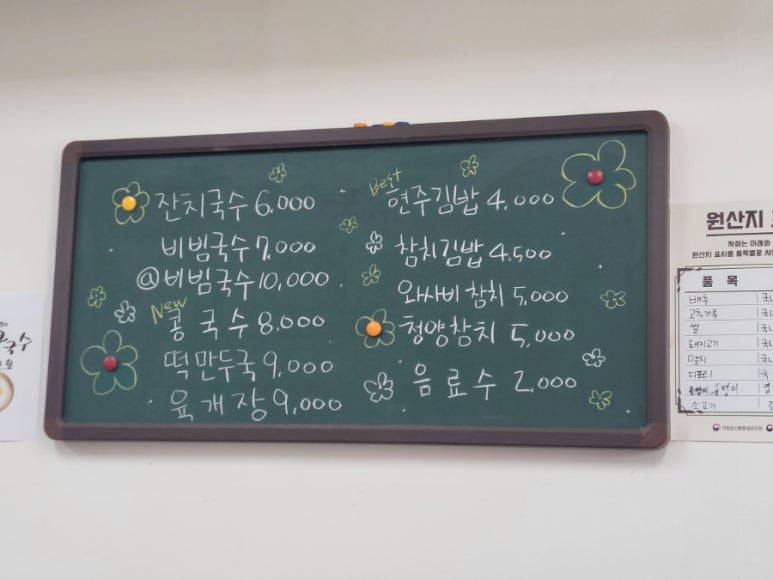 잔치국수 6.000
비빔국수 7.000
@비빔국수 10,000
New
콩국수 8.000
떡만두국 9,000
육개장 9,000
Best
현주김밥 4.000
참치김밥 4.500
와사비참치 5,000
청양참치 5,000
음료수 2.000
원산지
저희는 아래와
원산지 표시를 품목별로 시
품목
배추
고추가루
쌀
돼지고기
멸치
디포리
골뱅이
소고기
국수